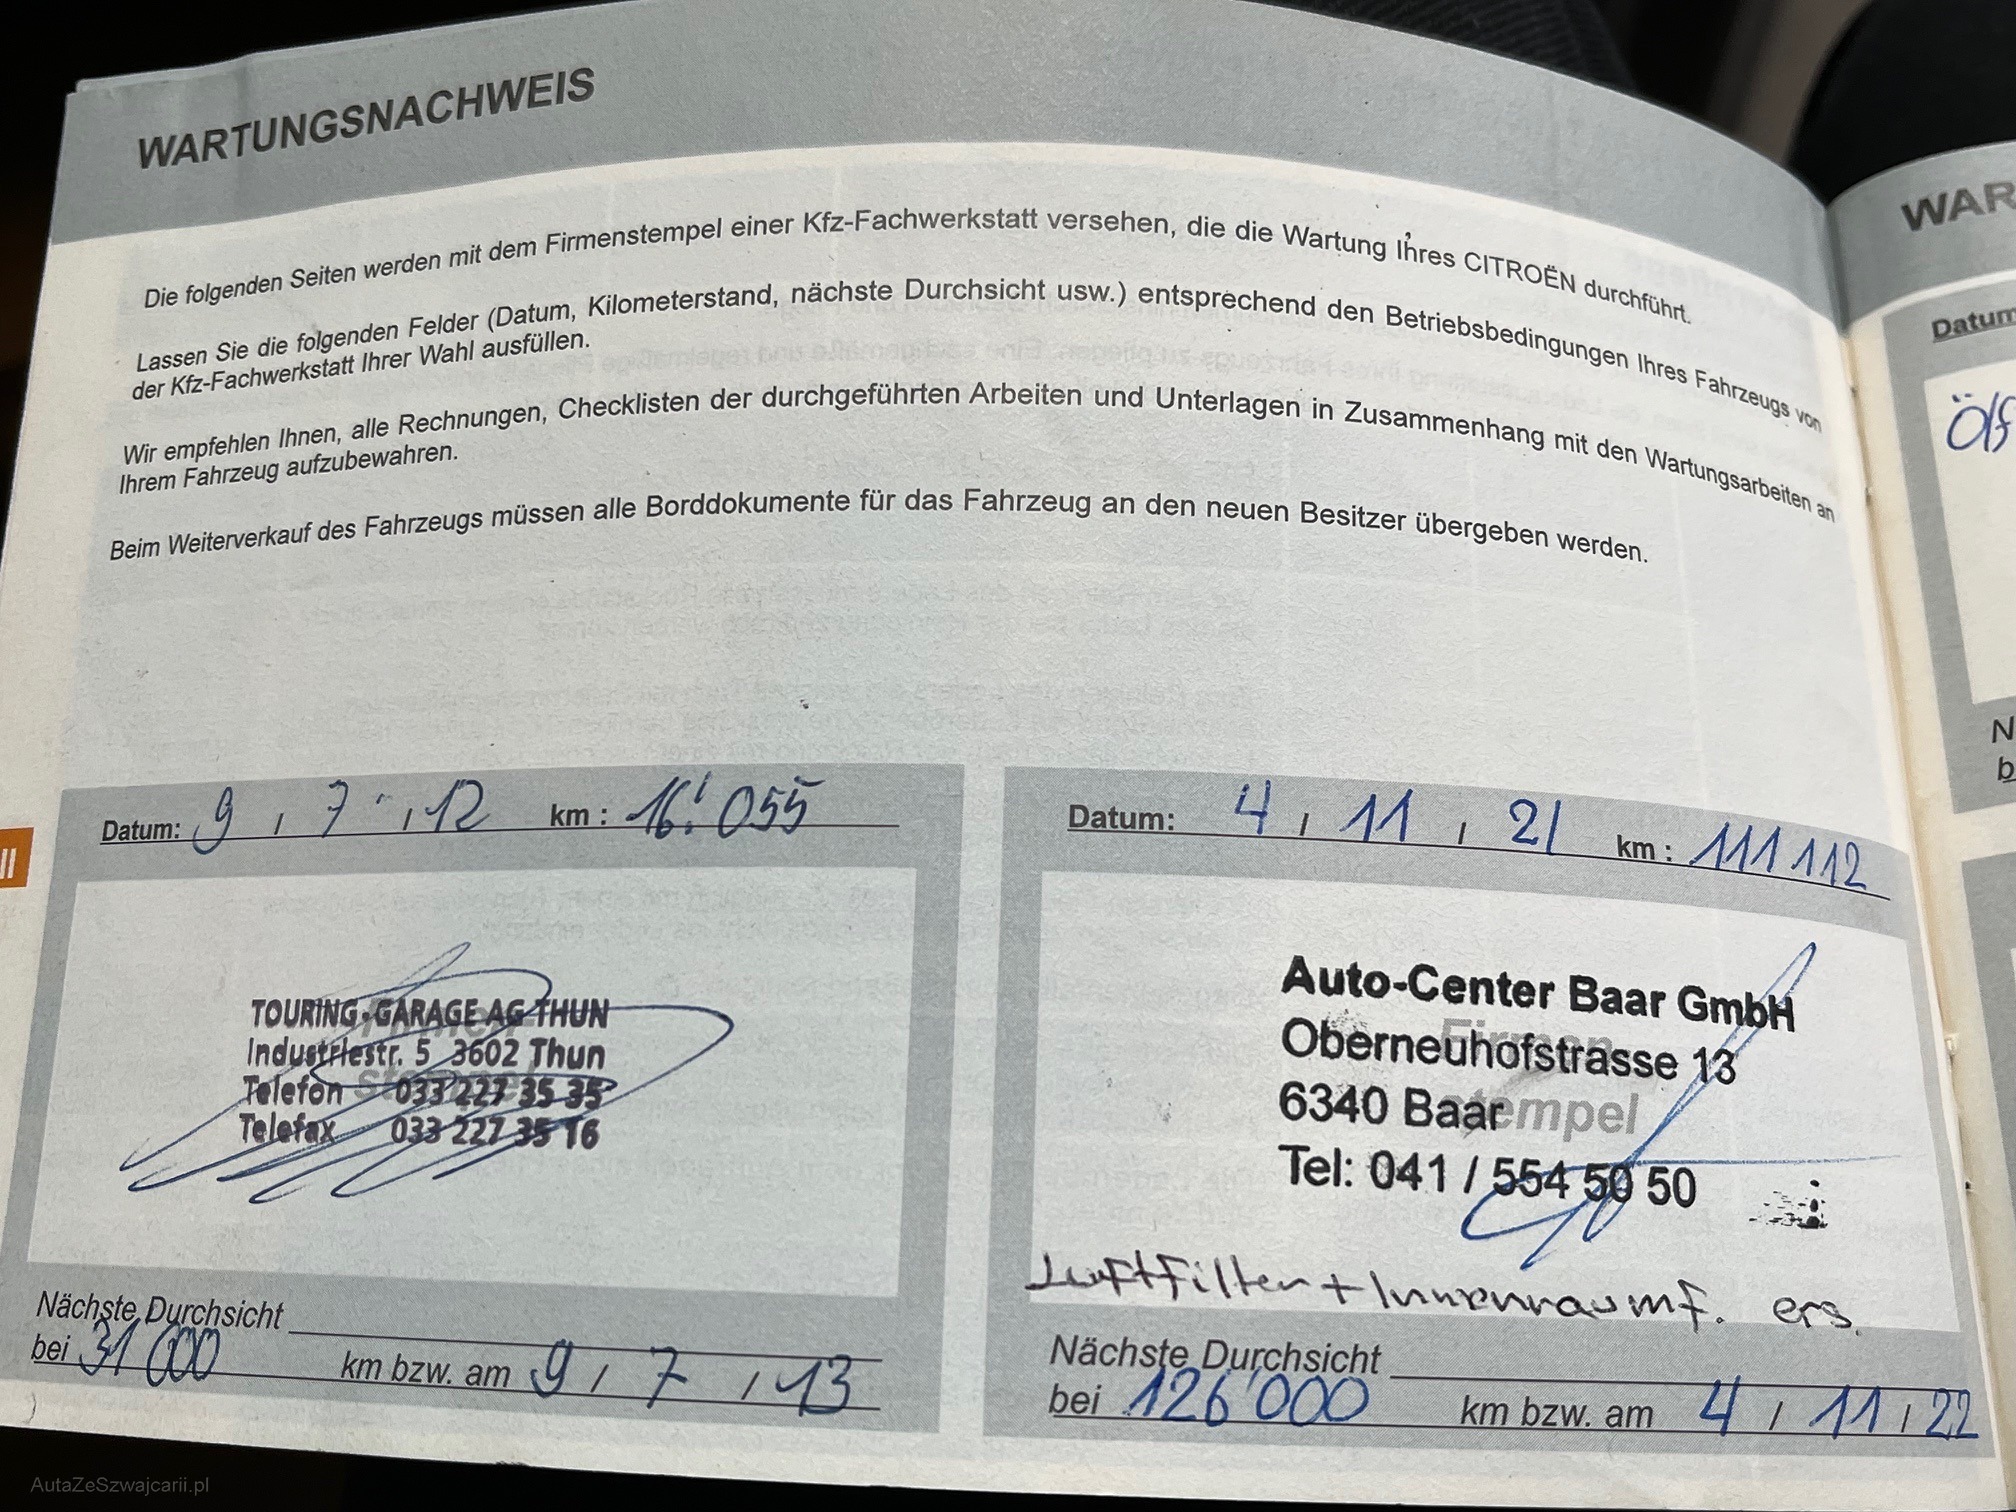 WARTUNGSNACHWEIS
Die folgenden Seiten werden mit dem Firmenstempel einer Kfz-Fachwerkstatt versehen, die die Wartung Ihres CITROËN durchführt.
Lassen Sie die folgenden Felder (Datum, Kilometerstand, nächste Durchsicht usw.) entsprechend den Betriebsbedingungen Ihres Fahrzeugs von
der Kfz-Fachwerkstatt Ihrer Wahl ausfüllen.
Wir empfehlen Ihnen, alle Rechnungen, Checklisten der durchgeführten Arbeiten und Unterlagen in Zusammenhang mit den Wartungsarbeiten an
Ihrem Fahrzeug aufzubewahren.
Beim Weiterverkauf des Fahrzeugs müssen alle Borddokumente für das Fahrzeug an den neuen Besitzer übergeben werden.
II
Datum: 9 / 7 / 12 km : 16'055
Firmen
stempel
TOURING-GARAGE AG THUN
Industriestr. 5 3602 Thun
Telefon 033 227 35 35
Telefax 033 227 35 16
Nächste Durchsicht
bei 31 000 km bzw. am 9 / 7 / 13
Datum: 4 / 11 / 21 km : 111 112
Firmen
stempel
Auto-Center Baar GmbH
Oberneuhofstrasse 13
6340 Baar
Tel: 041 / 554 50 50
Luftfilter + Innenraumf. ers.
Nächste Durchsicht
bei 126'000 km bzw. am 4 / 11 / 22
WAR
Datum
Ölf
N
b
AutaZeSzwajcarii.pl